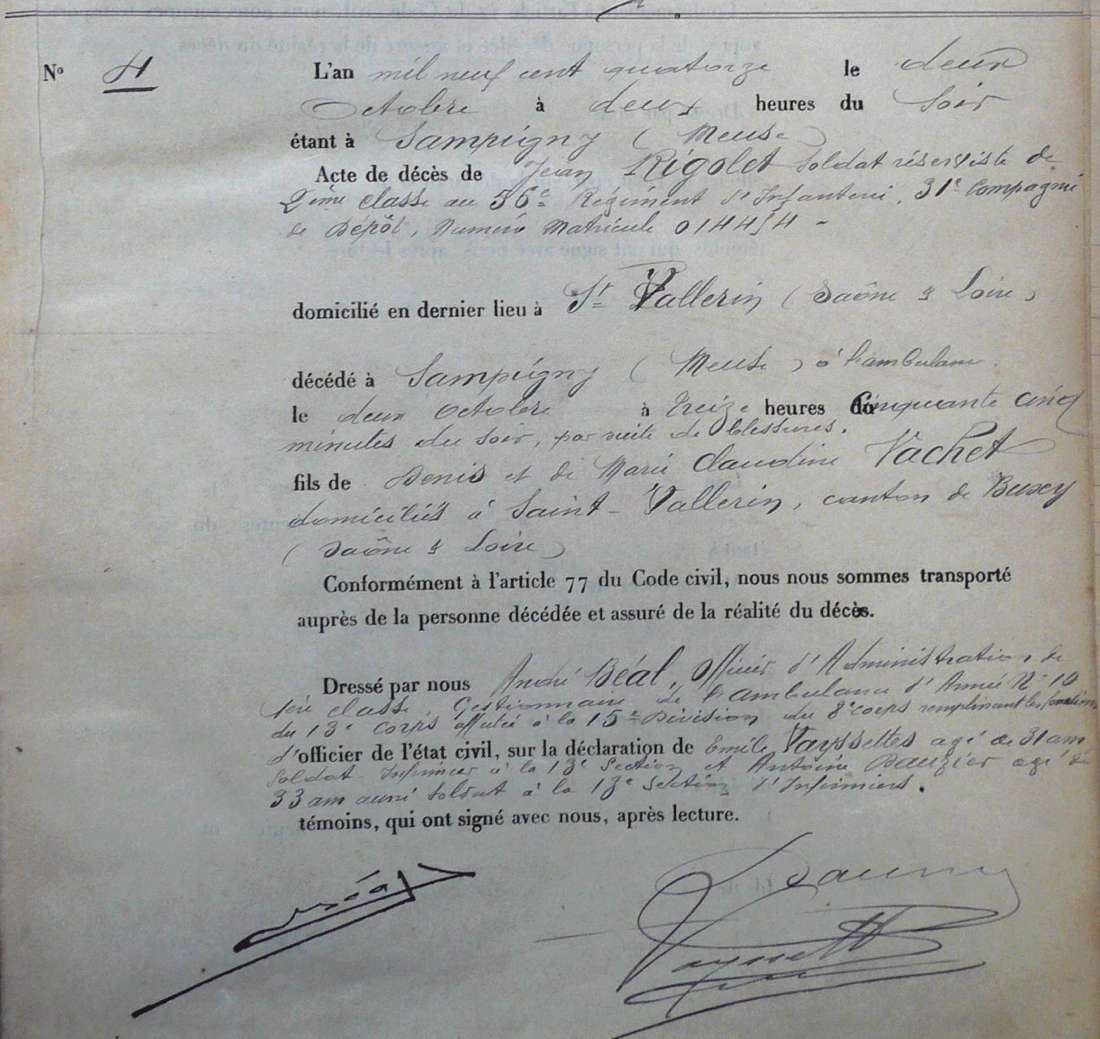 N° 4
L'an mil neuf cent quatorze le deux
Octobre à deux heures du Soir
étant à Sampigny (Meuse)
Acte de décès de Jean Rigolet Soldat réserviste de
2ème classe au 56e Régiment d'Infanterie, 31e Compagnie
de Dépôt, Numéro Matricule
domicilié en dernier lieu à St Vallerin (Saône & Loire)
décédé à Sampigny (Meuse) à l'ambulance
le deux Octobre à treize heures Cinquante cinq
minutes du soir, par suite de blessures.
fils de Denis et de Marie Claudine Vachet
domiciliés à Saint-Vallerin, canton de Buxy
(Saône & Loire)
Conformément à l'article 77 du Code civil, nous nous sommes transporté
auprès de la personne décédée et assuré de la réalité du décès.
Dressé par nous André Béal, Officier d'Administration de
1ère classe, Gestionnaire de l'ambulance d'Armée N° 10
du 13e Corps affectée à la 15e Division du 8e corps remplissant les fonctions
d'officier de l'état civil, sur la déclaration de Emile Vayssettes agé de 31 ans
Soldat Infirmier à la 13e Section et Antoine agé de
33 ans aussi soldat à la 13e Section d'Infirmiers.
témoins, qui ont signé avec nous, après lecture.
Béal
Vayssett